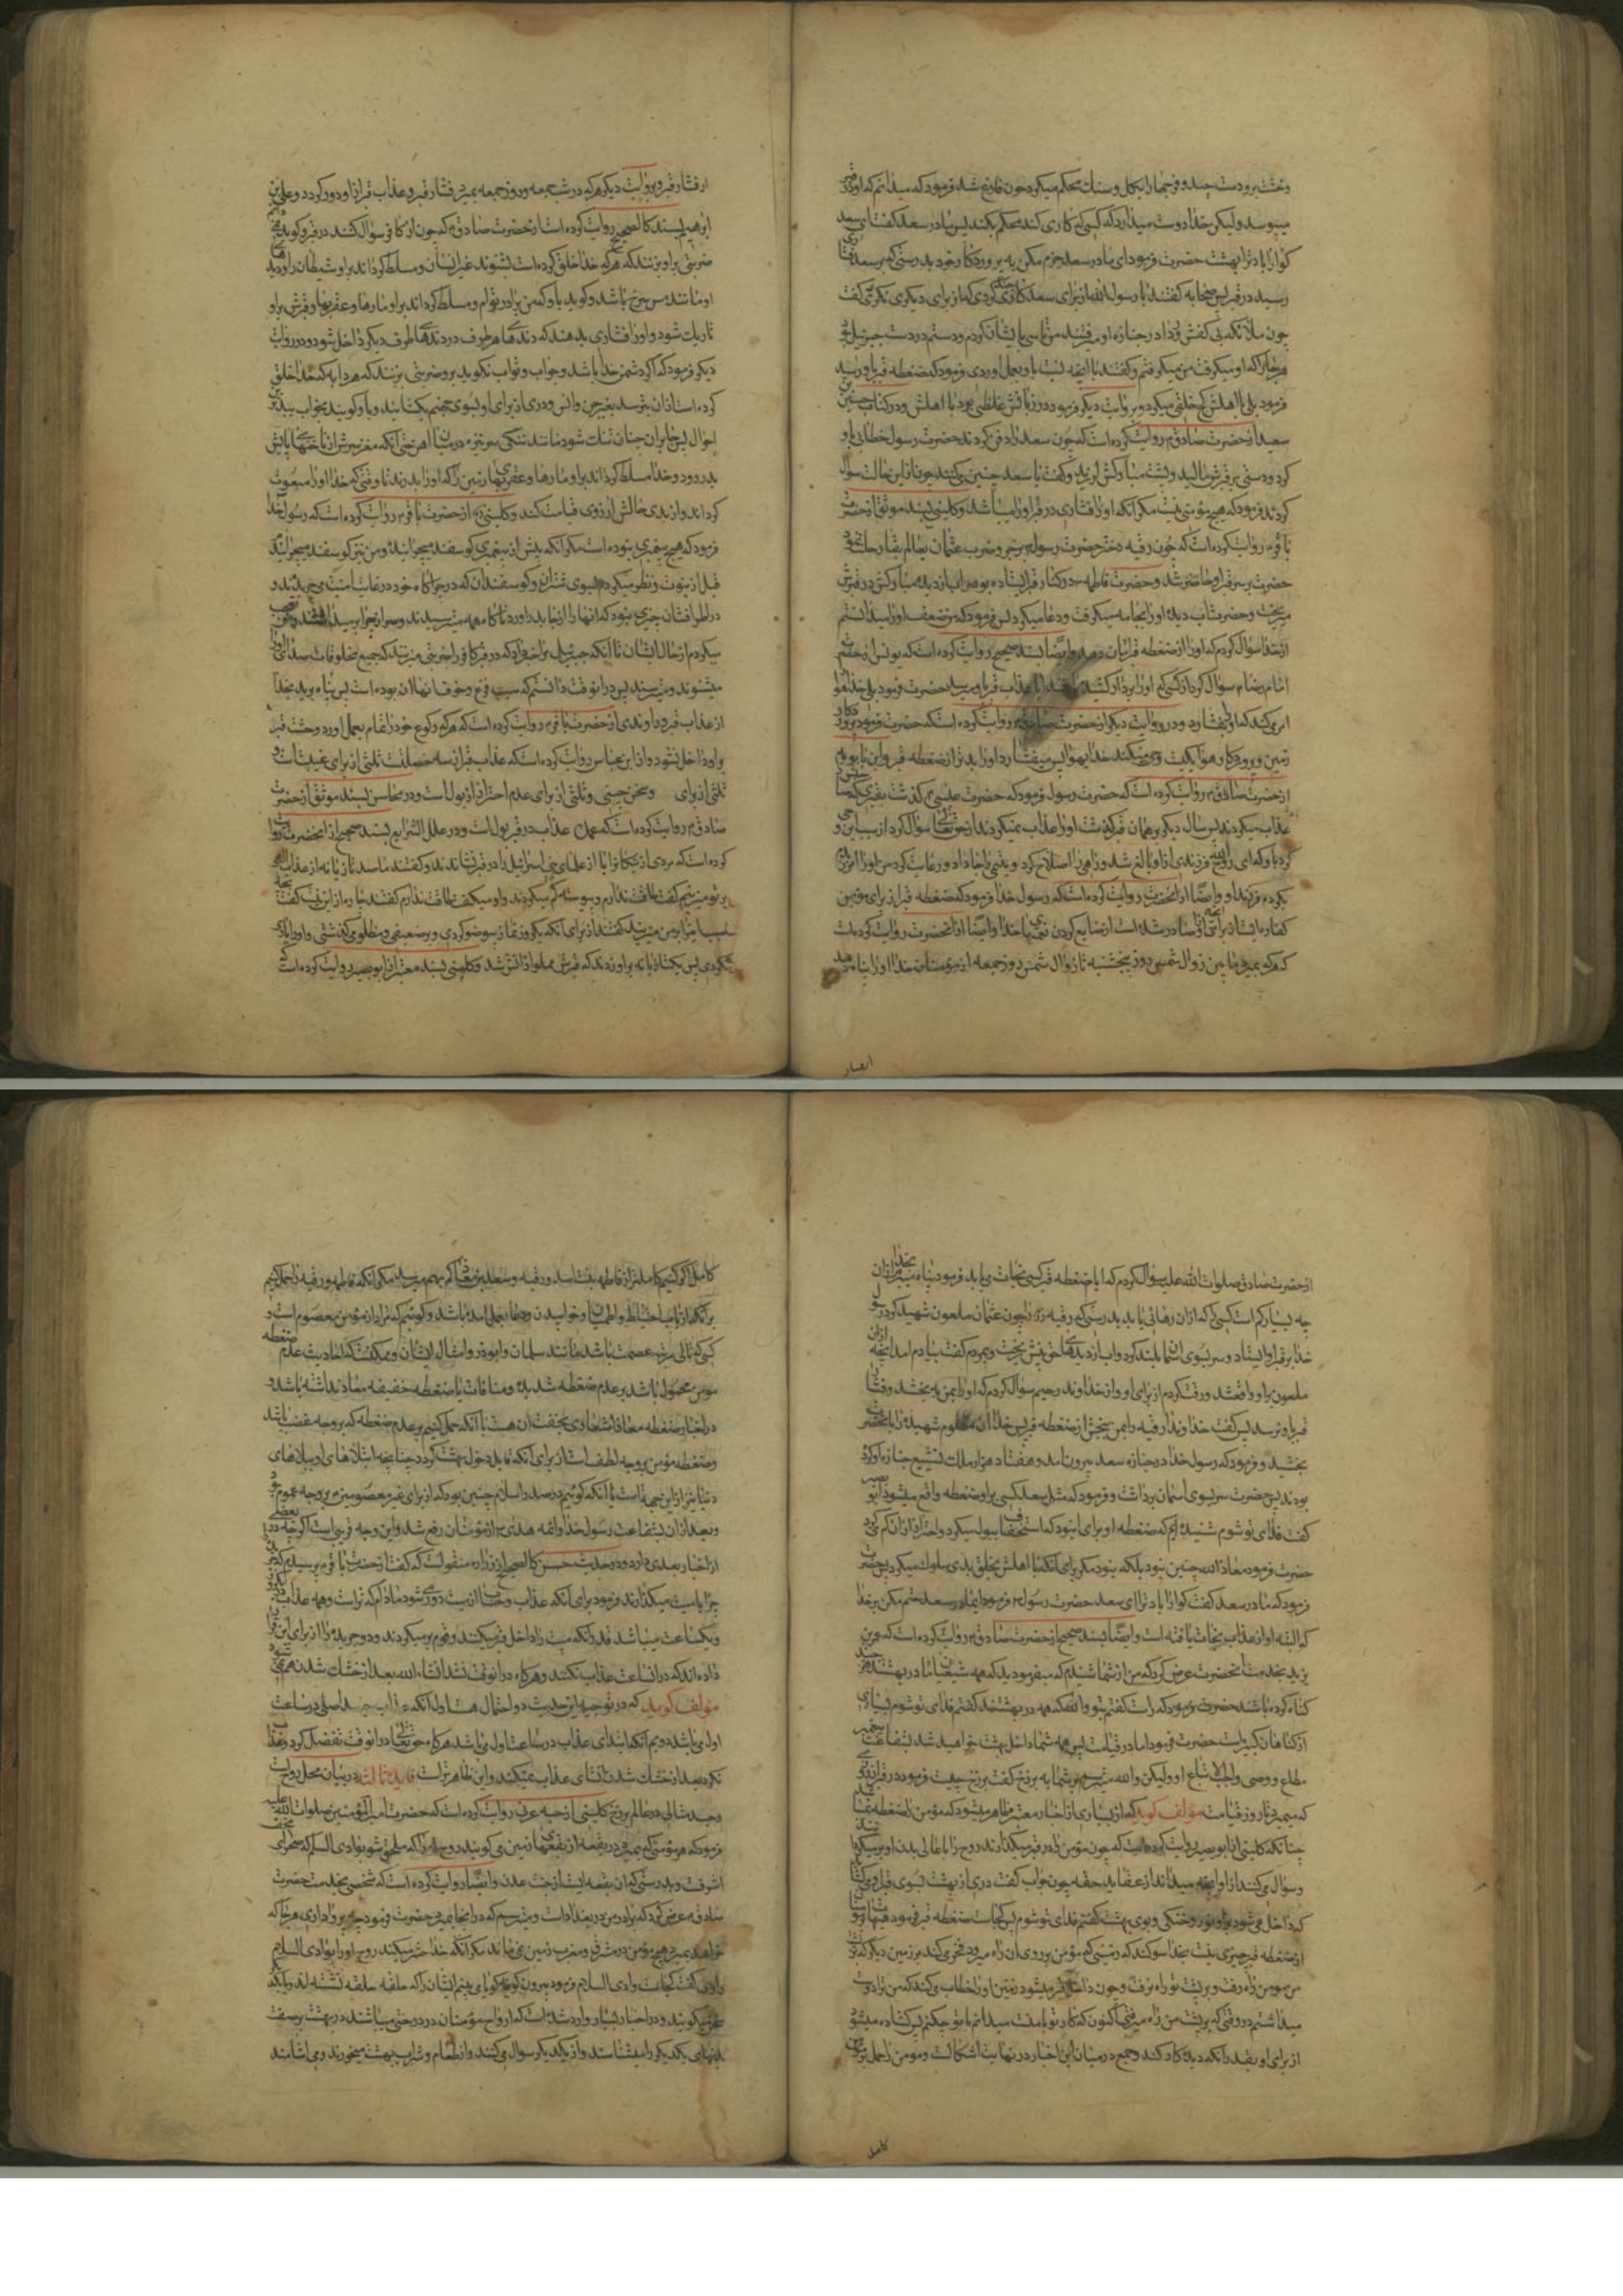 وخشت برو دست چید و فرجها را بکل و سنگ محکم میکرد چون فارغ شد فرمود که میدانم که او در قبر
میپوسد ولیکن خدا دوست میدارد که کسی که کاری کند محکم بکند پس مادر سعد گفت ای سعد
گوارا باد ترا بهشت حضرت فرمود ای مادر سعد جزم مکن به پروردگار خود بدرستی که بر سعد فشاری
رسید در قبر پس صحابه گفتند یا رسول الله از برای سعد کاری کردی که از برای دیگری نکردی گفت
چون ملائکه بی کفش و ردا در جنازه او میرفتند من تاسی بایشان کردم و دستم در دست جبرئیل بود
هر جا را که او میگرفت من میگرفتم وگفتند با اینکه نسبت باو بعمل اوردی فرمودی که ضغطه قبر باو رسید
فرمود بلی با اهلش کج خلقی میکرد و بروایت دیگر فرمود در زبانش غلظتی بود با اهلش ودر کتاب حسین بن
سعید از حضرت صادق م روایت کرده است که چون سعد را دفن کردند حضرت رسول خطابی باو
کرد و دستی بر قبرش مالید و پشت مبارکش لرزید وگفت با سعد چنین میکنند چون از این حالت سوال
کردند فرمود که هیچ مؤمنی نیست مگر انکه او را فشاری در قبر او را میباشد وکلینی بسند موثق از حضرت
باقر م روایت کرده است که چون رقیه دختر حضرت رسول بزخم وضرب عثمان بعالم بقا رحلت نمود
حضرت بر سر قبر او حاضر شد وحضرت فاطمه در کنار قبر ایستاده بود واب از دیده مبارکش در قبرش
میریخت وحضرت اب دیده او را بجامه میگرفت ودعا میکرد پس فرمود که من ضعف او را میدانستم
از خدا سؤال کردم که او را از ضغطه قبر امان دهد وایضا بسند صحیح روایت کرده است که یونس از حضرت
امام رضا م سؤال کرد از کسی که او را بردار کشیده باشند ایا عذاب قبر باو میرسد حضرت فرمود بلی خدا هوا را
امر میکند که او را بفشارد ودر روایت دیگر از حضرت صادق م روایت کرده است که حضرت فرمود پروردگار
زمین وپروردگار هوا یکیست وحی میکند خدا بهوا پس میفشارد او را بدتر از ضغطه قبر وابن بابویه
از حضرت صادق م روایت کرده است که حضرت رسول فرمود که حضرت عیسی م گذشت بقبری که صاحبش را
عذاب میکردند پس سال دیگر بر همان قبر گذشت او را عذاب نمیکردند از حق تعالی سؤال کرد از سبب این وحی
کرد باو که ای روح الله فرزندی از او بالغ شد و راهی را اصلاح کرد ویتیمی را جا داد ورعایت کرد من او را امرزیدم
بکرده فرزند او وایضا از انحضرت روایت کرده است که رسول خدا فرمود که ضغطه قبر از برای مؤمن
کفاره ایست از برای انچه از او صادر شده است از ضایع کردن نعمتهای خدا وایضا از انحضرت روایت کرده است
که هر که بمیرد مابین زوال شمس روز پنجشنبه تا زوال شمس روز جمعه از مؤمنان خدا او را پناه میدهد
از فشار قبر وبروایت دیگر هر که در شب جمعه و روز جمعه بمیرد فشار قبر وعذاب قبر از او دور گردد وعلی بن
ابرهیم بسند کالصحیح روایت کرده است از حضرت صادق م که چون از کافر سؤال کنند در قبر وگوید نمیدانم
ضربتی بر او بزنند که هر که خدا خلق کرده است بشنوند غیر انسان ومسلط گرداند بر او شیطان را ودیدهای
او مانند مس سرخ باشد وگوید باو که من برادر توام ومسلط گرداند بر او مارها وعقربها وقبرش بر او
تاریک شود واو را فشاری بدهند که دندهای هر طرف در دندهای طرف دیگر داخل شود ودر روایت
دیگر فرمود که اگر دشمن خدا باشد وجواب وثواب نگوید برو ضربتی بزنند که هر دابه که خدا خلق
کرده است از ان بترسد بغیر جن وانس ودری از برای او بسوی جهنم بگشایند وباو گویند بخواب ببدترین
احوال پس جا بر ان چنان تنگ شود مانند تنگی سر نیزه در بن اهن حتی انکه مغز سرش از ناخنهای پایش
بدر رود وخدا مسلط گرداند بر او مارها وعقربهای زمین را که او را بدرند تا وقتی که خدا او را مبعوث
گرداند واز بدی حالش ارزوی قیامت کند وکلینی ره از حضرت باقر م روایت کرده است که رسول خدا
فرمود که هیچ پیغمبری نبوده است مگر انکه پیش از پیغمبری گوسفند میچرانیده ومن نیز گوسفند میچرانیدم
قبل از نبوت ونظر میکردم بسوی شتران وگوسفندان که در چراگاه خود در غایت امنیت میچریدند و
در اطراف شان چیزی نبود که انها را از جا بدر اورد ناگاه همه میترسیدند وسر از چرا بر میداشتند ومن تعجب
میکردم از حال ایشان تا انکه جبرئیل مرا خبر داد که در قبر کافر را ضربتی میزنند که جمیع مخلوقات صدای او را
میشنوند ومیترسند پس در انوقت دانستم که سبب فزع وخوف انها ان بوده است پس پناه برید بخدا
از عذاب قبر وراوندی از حضرت باقر م روایت کرده است که هر که رکوع خود را تمام بعمل اورد وحشت قبر
باو داخل نشود واز ابن عباس روایت کرده است که عذاب قبر از سه خصلت ثلثی از برای غیبت است و
ثلثی از برای سخن چینی وثلثی از برای عدم احتراز از بول است ودر محاسن بسند موثق از حضرت
صادق م روایت کرده است که عمده عذاب در قبر بول است ودر علل الشرایع بسند صحیح از انحضرت روایت
کرده است که مردی از نیکان را یا از علمای بنی اسرائیل را در قبر نشاندند وگفتند ما صد تازیانه از عذاب الله
بر تو میزنیم گفت طاقت ندارم وپیوسته کم میکردند واو میگفت طاقت ندارم گفتند چاره از این نیست گفت
بچه سبب اینرا بر من میزنید گفتند از برای انکه یکروز نماز بیوضو کردی وبر ضعیفی ومظلومی گذشتی واو را یاری
نکردی پس یکتازیانه بر او زدند که قبرش مملو از اتش شد وکلینی بسند معتبر از ابوبصیر روایت کرده است که
انصار
از حضرت صادق صلوات الله علیه سؤال کردم که ایا ضغطه قبر کسی نجات مییابد فرمود پناه میبرم بخدا از ان
چه بسیار کم است کسی که از ان رهائی یابد بدرستی که رقیه را چون عثمان ملعون شهید کرد رسول
خدا بر قبر او ایستاد وسر بسوی اسمان بلند کرد واب از دیدهای حق بینش ریخت وبمردم گفت بیادم امد انچه از ان
ملعون بر او واقع شد ورقت کردم از برای او واز خداوند رحیم سؤال کردم که او را بمن ببخشد وفشار
قبر باو نرسد پس گفت خداوندا رقیه را بمن ببخش از ضغطه قبر پس خدا ان مظلوم شهیده را بانحضرت
بخشید وفرمود که رسول خدا در جنازه سعد بیرون امد وهفتاد هزار ملک تشییع جنازه او کرده
بودند پس حضرت سر بسوی اسمان برداشت وفرمود که مثل سعد کسی بر او ضغطه واقع میشود ابو بصیر
گفت فدای تو شوم شنیده ایم که ضغطه او برای این بود که استخفاف ببول میکرد واحتراز از ان کم میکرد
حضرت فرمود معاذ الله چنین نبود بلکه نبود مگر برای انکه با اهلش بخلق بدی سلوک میکرد پس حضرت
فرمود که مادر سعد گفت گوارا باد ترا ای سعد حضرت رسول م فرمود ای مادر سعد حتم مکن بر خدا
که البته او از عذاب نجات یافته است وایضا بسند صحیح از حضرت صادق م روایت کرده است که عمر بن
یزید بخدمت انحضرت عرض کرد که من از شما شنیدم که میفرمودید که همه شیعیان ما در بهشتند هر چند
گناه کرده باشند حضرت فرمود که راست گفتم بتو والله که همه در بهشتند گفتم فدای تو شوم بسیاری
از گناهان کبیره است حضرت فرمود اما در قیامت پس همه شما داخل بهشت خواهید شد بشفاعت پیغمبر
مطاع ووصی واجب الاتباع او ولیکن والله میترسم بر شما به برزخ گفت برزخ چیست فرمود در قبر از روزی
که میمیرد تا روز قیامت مؤلف گوید که از بسیاری از اخبار معتبر ظاهر میشود که مؤمن را ضغطه نمیباشد
چنانکه کلینی از ابوبصیر روایت کرده است که چون مؤمن را در قبر میگذارند روح را باعالی بدن او بر میگردانند
وسؤال میکنند از او انچه میداند از عقاید حقه چون جواب گفت دری از بهشت بسوی قبر او میگشایند
که داخل میشود بر او نور وخنکی وبوی بهشت گفتم فدای تو شوم پس کجاست ضغطه قبر فرمود هیهات مؤمنان را
از ضغطه قبر چیزی نیست بخدا سوگند که زمینی که مؤمن بر روی ان راه میرود فخر میکند بر زمین دیگر که بر پشت
من مومن راه رفت وبر پشت تو راه نرفت وچون داخل قبر میشود زمین او را خطاب میکند که من ترا دوست
میداشتم در وقتی که بر پشت من راه میرفتی اکنون که کار تو با منست میدانم با تو چکنم پس گشاده میشود
از برای او بقدر انکه دیده کار کند وجمع در میان این اخبار در نهایت اشکال است ومومن را حمل بر مؤمن
کامل اگر کنیم کاملتر از فاطمه بنت اسد ورقیه وسعد بن معاذ کم بهم میرسد مگر انکه فاطمه ورقیه را حمل کنیم
بر انکه از باب احتیاط واطمینان وخوابیدن ودعا بعمل امده باشد وگوئیم که مراد از مؤمن معصوم است و
کسی که تالی مرتبه عصمت باشد مانند سلمان وابوذر وامثال ایشان وممکنست که احادیث عدم ضغطه
مومن محمول باشد بر عدم ضغطه شدیده ومنافات با ضغطه خفیفه نداشته باشد و
در اخبار ضغطه معاذ اشعاری بخفت ان هست یا انکه حمل کنیم بر عدم ضغطه که بر وجه غضب باشد
وضغطه مؤمن بر وجه لطف است از برای انکه قابل دخول بهشت گردد چنانچه ابتلاهای او ببلاهای
دنیا نیز از این جهة است یا انکه گوئیم در صدر اسلام چنین بود که از برای غیر معصومین م بر وجه عموم بود
وبعد از ان بشفاعت رسول خدا وائمه هدی م از مؤمنان رفع شد واین وجه قریبی است اگر چه در بعضی
از اخبار بعدی دارد ودر حدیث حسن کالصحیح از زراره منقولست که گفت از حضرت باقر م پرسیدم که جریده
چرا با میت میگذارند فرمود برای انکه عذاب وحساب از میت دور میشود مادام که تر است وهمه عذاب در یکروز
ویکساعت میباشد قدر انکه میت را داخل قبر میکنند وقوم بر میگردند ودو جریده را از برای این قرار
داده اند که در ان ساعت عذاب نکنند وهر گاه در انوقت نشد انشاء الله بعد از خشک شدن هم نمیشود
مؤلف گوید که در توجیه این حدیث دو احتمال هست اول انکه عذاب جسد اصلی در ساعت
اول میباشد دویم انکه ابتدای عذاب در ساعت اول میباشد هر گاه حق تعالی در انوقت تفضل کرد وعذاب
نکرد بعد از خشک شدن ابتدای عذاب نمیکند واین ظاهر تر است فایده ثالثه در بیان محل روح است
وجسد مثالی در عالم برزخ کلینی از حبه عرنی روایت کرده است که حضرت امیر المؤمنین صلوات الله علیه
فرمود که هر مؤمنی که بمیرد در بقعه از بقعهای زمین میگویند روح او را که ملحق شو بوادی السلام که صحرای نجف
اشرفست وبدرستی که ان بقعه ایست از جنت عدن وایضا روایت کرده است که شخصی بخدمت حضرت
صادق م عرض کرد که برادر من در بغداد است ومیترسم که در انجا بمیرد حضرت فرمود چه پروا داری هر جا که
خواهد بمیرد هیچ مؤمن در مشرق ومغرب زمین نمیماند مگر انکه خدا حشر میکند روح او را بوادی السلام
راوی گفت کجاست وادی السلام فرمود بیرون کوفه گویا میبینم ایشان را که حلقه حلقه نشسته اند وبا یکدیگر
سخن میگویند ودر اخبار بسیار وارد شده است که ارواح مؤمنان در درختی میباشند در بهشت بر صفت
بدنهای یکدیگر را میشناسند واز یکدیگر سوال میکنند واز طعام وشراب بهشت میخورند ومیاشامند
کامل